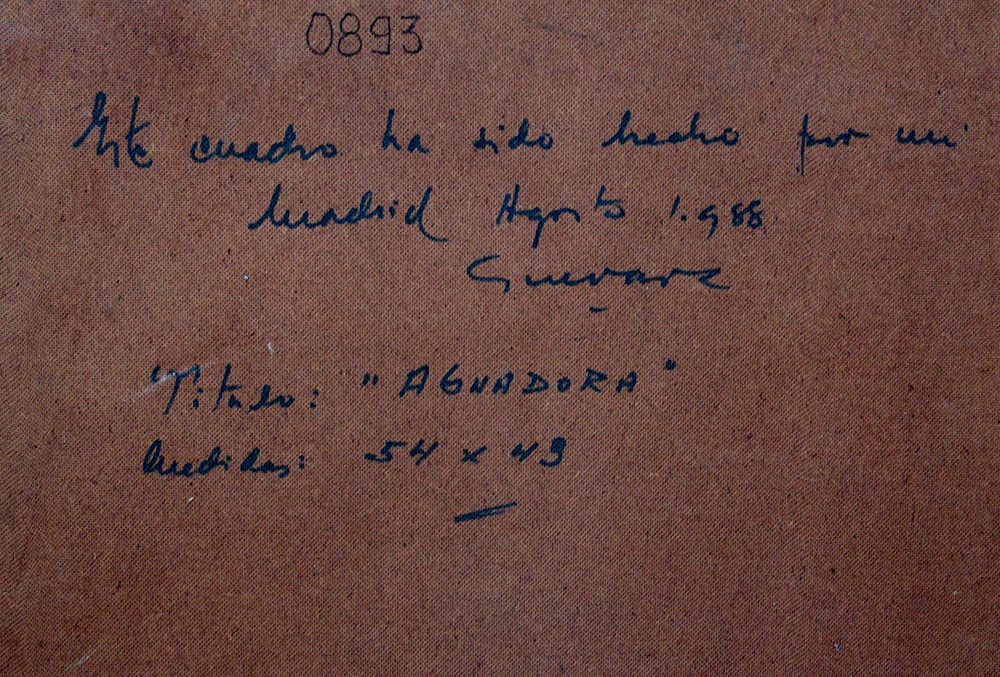 0893
Este cuadro ha sido hecho por mi
Madrid Agosto 1.988
Guevara
Titulo: "AGUADORA"
Medidas: 54 x 49